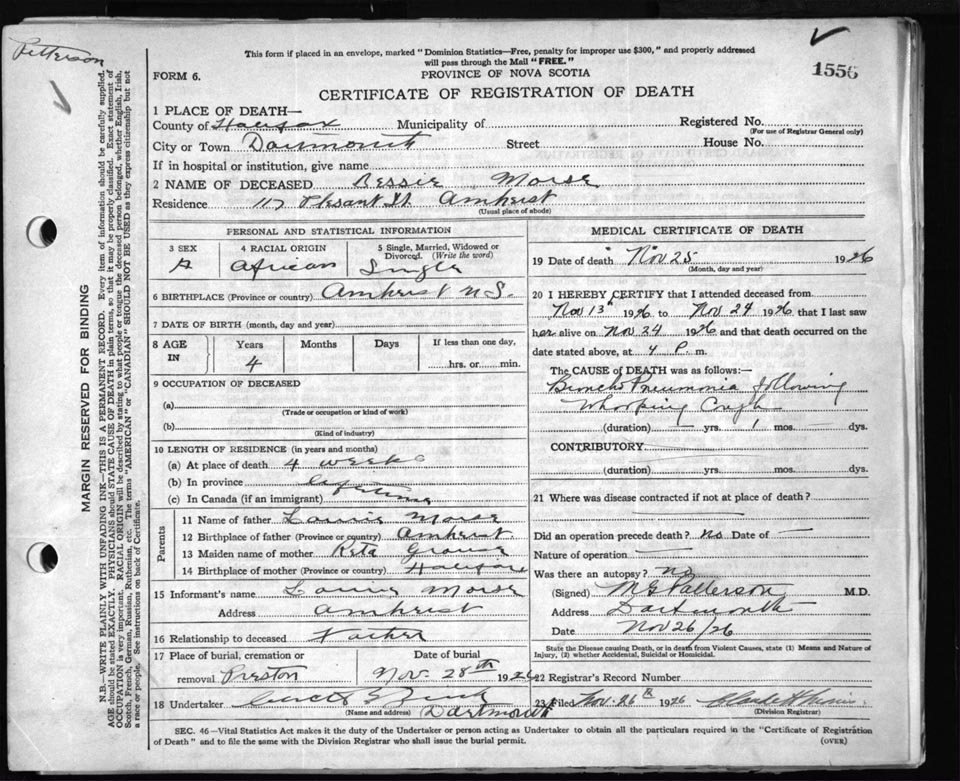 Petterson
This form if placed in an envelope, marked "Dominion Statistics—Free, penalty for improper use $300," and properly addressed
will pass through the Mail "FREE."
1556
FORM 6.
PROVINCE OF NOVA SCOTIA
CERTIFICATE OF REGISTRATION OF DEATH
MARGIN RESERVED FOR BINDING
N.B.—WRITE PLAINLY WITH UNFADING INK—THIS IS A PERMANENT RECORD. Every item of information should be carefully supplied.
AGE should be stated EXACTLY. PHYSICIANS should STATE CAUSE OF DEATH in plain terms, so that it may be properly classified. Exact statement of
OCCUPATION is very important. RACIAL ORIGIN will be described by stating to what people or tongue the deceased person belonged, whether English, Irish,
Scotch, French, German, Russian, Ruthenian, etc. The terms "AMERICAN" or "CANADIAN" SHOULD NOT BE USED as they express citizenship but not
a race or people. See instructions on back of Certificate.
1 PLACE OF DEATH—
County of Halifax Municipality of Registered No.
(For use of Registrar General only)
City or Town Dartmouth Street House No.
If in hospital or institution, give name
2 NAME OF DECEASED Bessie Morse
Residence 117 Plesant St. Amherst
(Usual place of abode)
PERSONAL AND STATISTICAL INFORMATION
3 SEX 4 RACIAL ORIGIN 5 Single, Married, Widowed or
Divorced. (Write the word)
African Single
6 BIRTHPLACE (Province or country) Amherst N.S.
7 DATE OF BIRTH (month, day and year)
8 AGE IN Years Months Days If less than one day,
4 hrs. or min.
9 OCCUPATION OF DECEASED
(a)
(Trade or occupation or kind of work)
(b)
(Kind of industry)
10 LENGTH OF RESIDENCE (in years and months)
(a) At place of death 4 weeks
(b) In province lifetime
(c) In Canada (if an immigrant)
Parents
11 Name of father Louis Morse
12 Birthplace of father (Province or country) Amherst.
13 Maiden name of mother Reta
14 Birthplace of mother (Province or country) Halifax
15 Informant's name Louis Morse
Address Amherst
16 Relationship to deceased Father
17 Place of burial, cremation or Date of burial
removal Preston Nov. 28th 1926
18 Undertaker
(Name and address) Dartmouth
MEDICAL CERTIFICATE OF DEATH
19 Date of death Nov 25 1926
(Month, day and year)
20 I HEREBY CERTIFY that I attended deceased from
Nov 13th 1926 to Nov 24 1926 that I last saw
her alive on Nov 24 1926 and that death occurred on
the date stated above, at 4 P. m.
The CAUSE OF DEATH was as follows:—
Broncho Pneumonia following
Whooping Cough
(duration) yrs. 1 mos. dys.
CONTRIBUTORY
(duration) yrs. mos. dys.
21 Where was disease contracted if not at place of death?
Did an operation precede death? no Date of
Nature of operation
Was there an autopsy? no
(Signed) M G Patterson M.D.
Address Dartmouth
Date Nov 26/26
State the Disease causing Death, or in death from Violent Causes, state (1) Means and Nature of
Injury, (2) whether Accidental, Suicidal or Homicidal.
22 Registrar's Record Number
23 Filed Nov. 26 1926
(Division Registrar)
SEC. 46—Vital Statistics Act makes it the duty of the Undertaker or person acting as Undertaker to obtain all the particulars required in the "Certificate of Registration
of Death" and to file the same with the Division Registrar who shall issue the burial permit. (OVER)